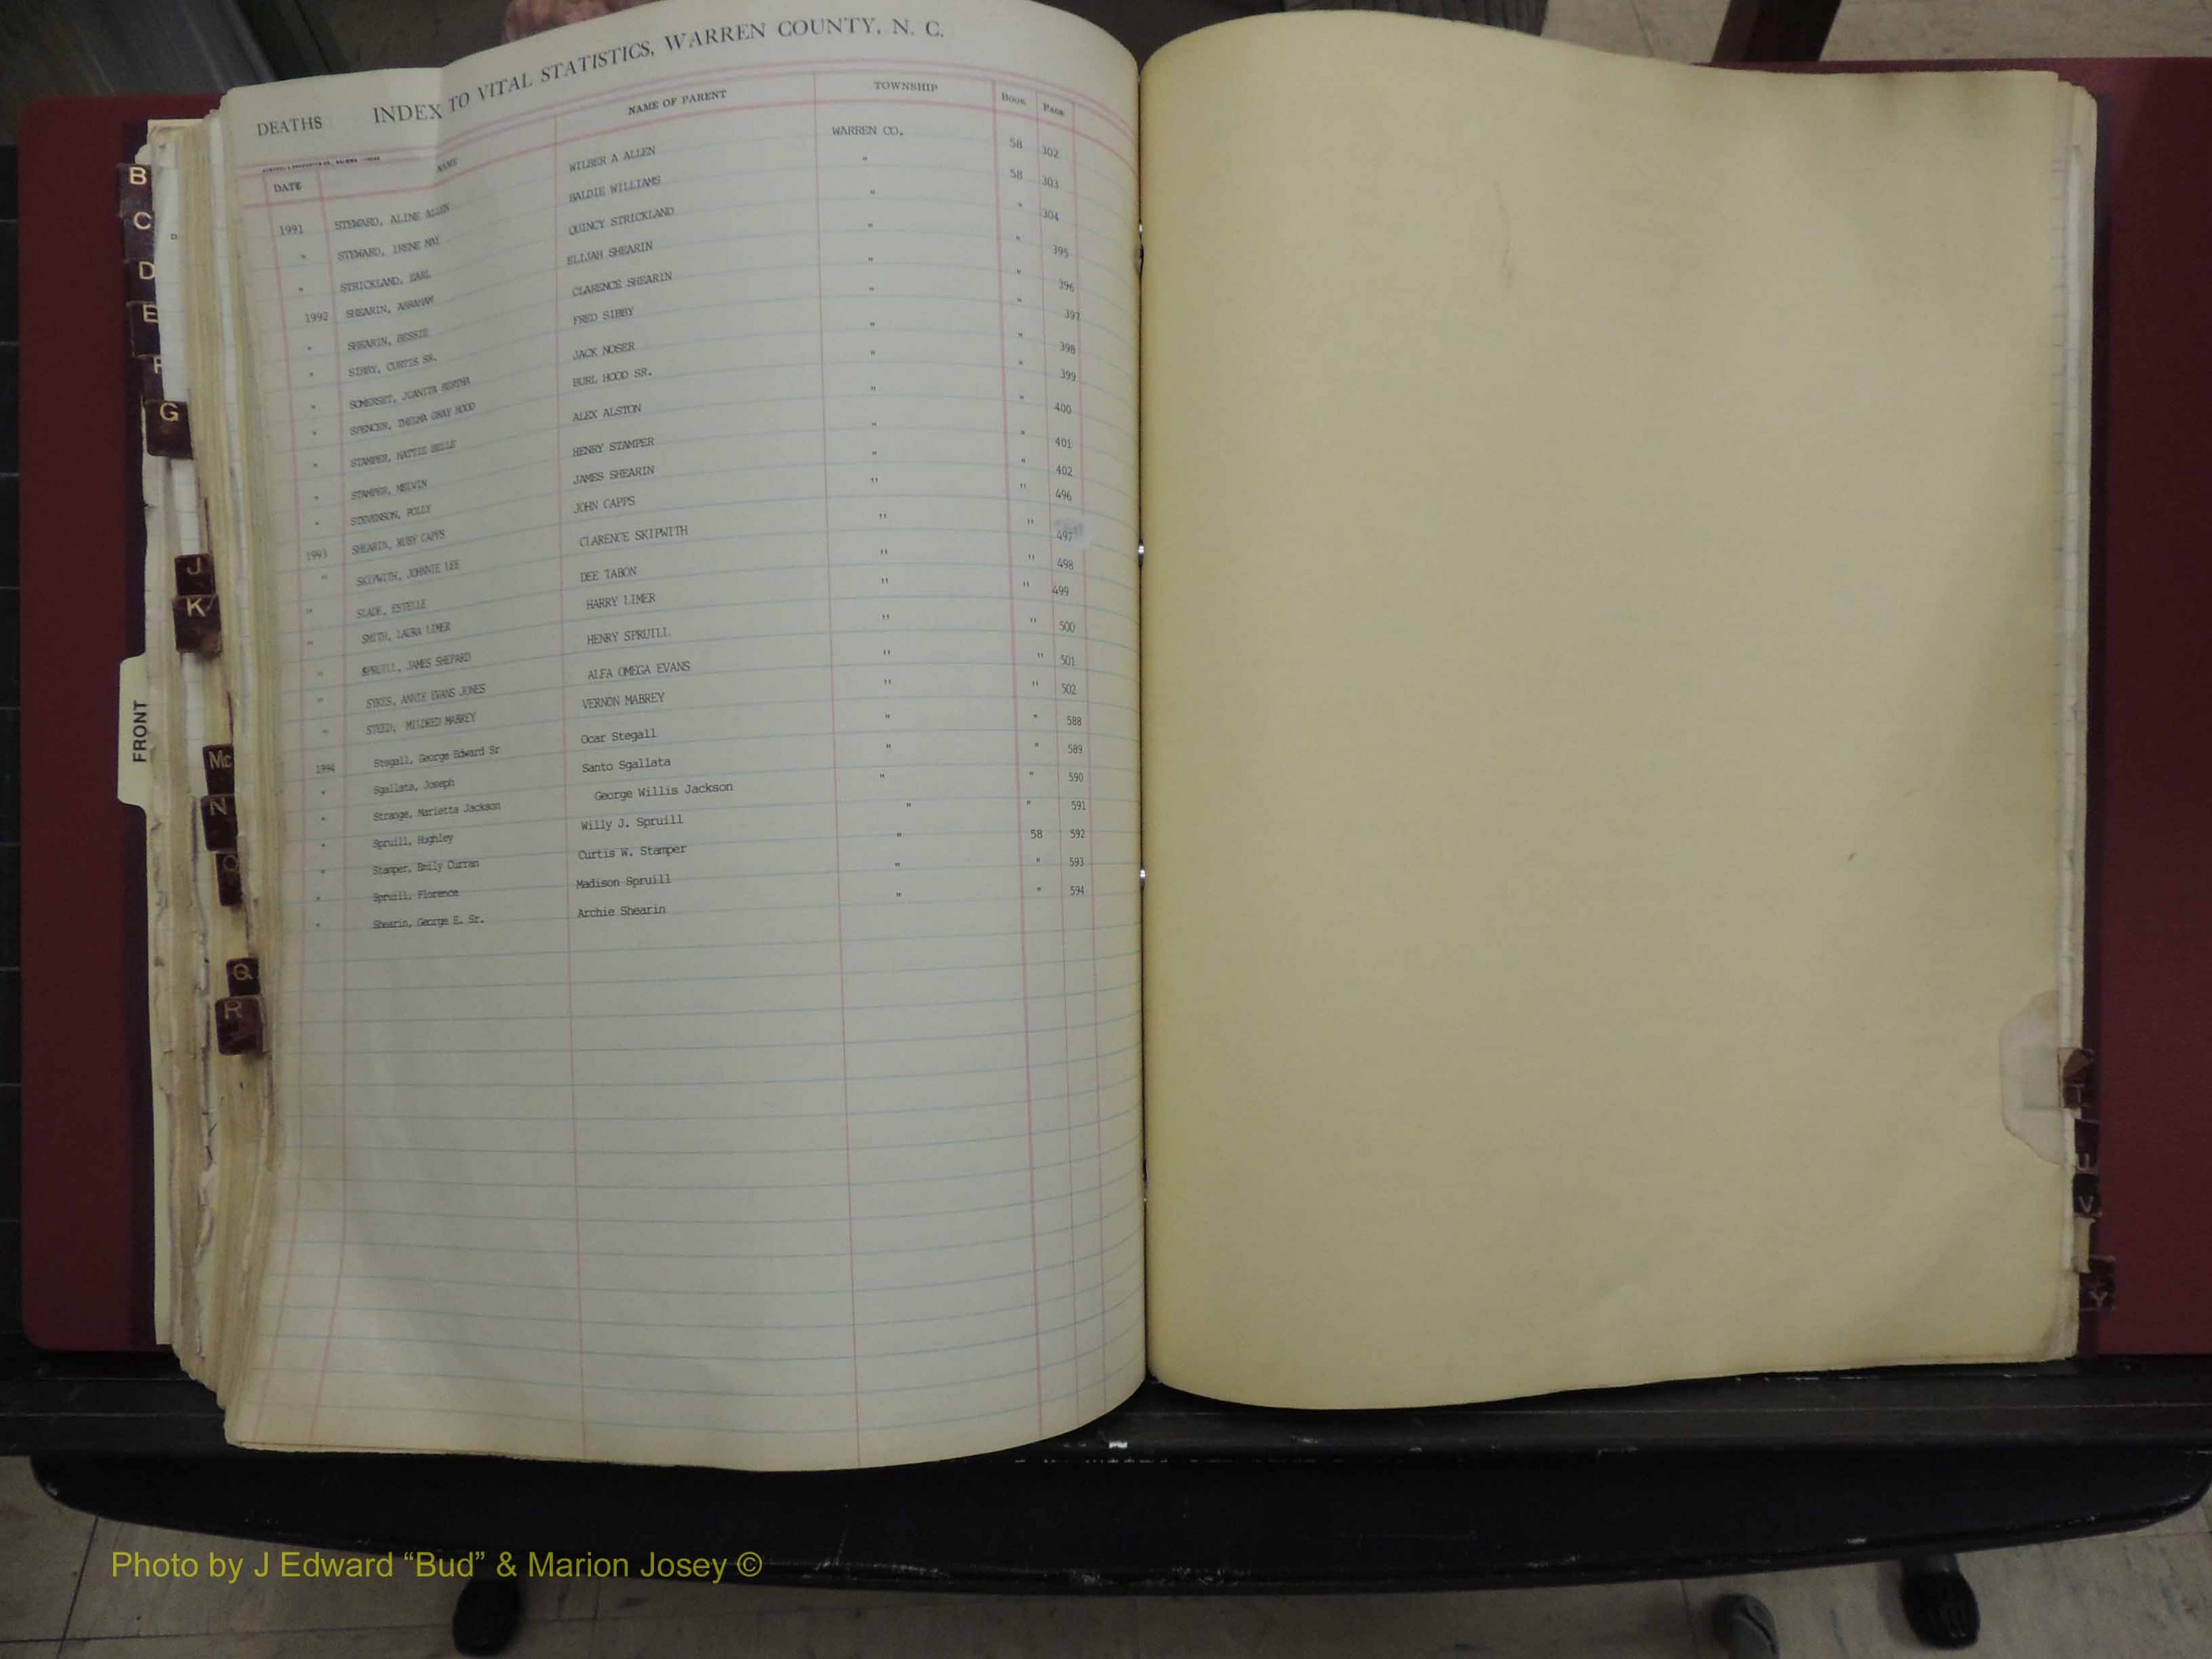 DEATHS INDEX TO VITAL STATISTICS, WARREN COUNTY, N. C.
DATE NAME NAME OF PARENT TOWNSHIP Book Page
1991 STEWARD, ALINE ALLEN WILBER A ALLEN WARREN CO. 58 302
" STEWARD, IRENE MAY BALDIE WILLIAMS " 58 303
" STRICKLAND, EARL QUINCY STRICKLAND " " 304
1992 SHEARIN, ABRAHAM ELIJAH SHEARIN " " 395
" SHEARIN, BESSIE CLARENCE SHEARIN " " 396
" SIBBY, CURTIS SR. FRED SIBBY " " 397
" SOMERSET, JUANITA BERTHA JACK NOSER " " 398
" SPENCER, THELMA GRAY HOOD BURL HOOD SR. " " 399
" STAMPER, HATTIE BELLE ALEX ALSTON " " 400
" STAMPER, MELVIN HENRY STAMPER " " 401
" STEVENSON, POLLY JAMES SHEARIN " " 402
1993 SHEARIN, RUBY CAPPS JOHN CAPPS " " 496
" SKIPWITH, JOHNNIE LEE CLARENCE SKIPWITH " " 497
" SLADE, ESTELLE DEE TABON " " 498
" SMITH, LAURA LIMER HARRY LIMER " " 499
" SPRUILL, JAMES SHEPARD HENRY SPRUILL " " 500
" SYKES, ANNIE EVANS JONES ALFA OMEGA EVANS " " 501
" STEED, MILDRED MABREY VERNON MABREY " " 502
1994 Stegall, George Edward Sr Ocar Stegall " " 588
" Sgallata, Joseph Santo Sgallata " " 589
" Strange, Marietta Jackson George Willis Jackson " " 590
" Spruill, Hughley Willy J. Spruill " " 591
" Stamper, Emily Curran Curtis W. Stamper " 58 592
" Spruill, Florence Madison Spruill " " 593
" Shearin, George E. Sr. Archie Shearin " " 594
B
C
D
E
F
G
J
K
FRONT
Mc
N
O
Q
R
T
U
V
Y
Photo by J Edward “Bud” & Marion Josey ©